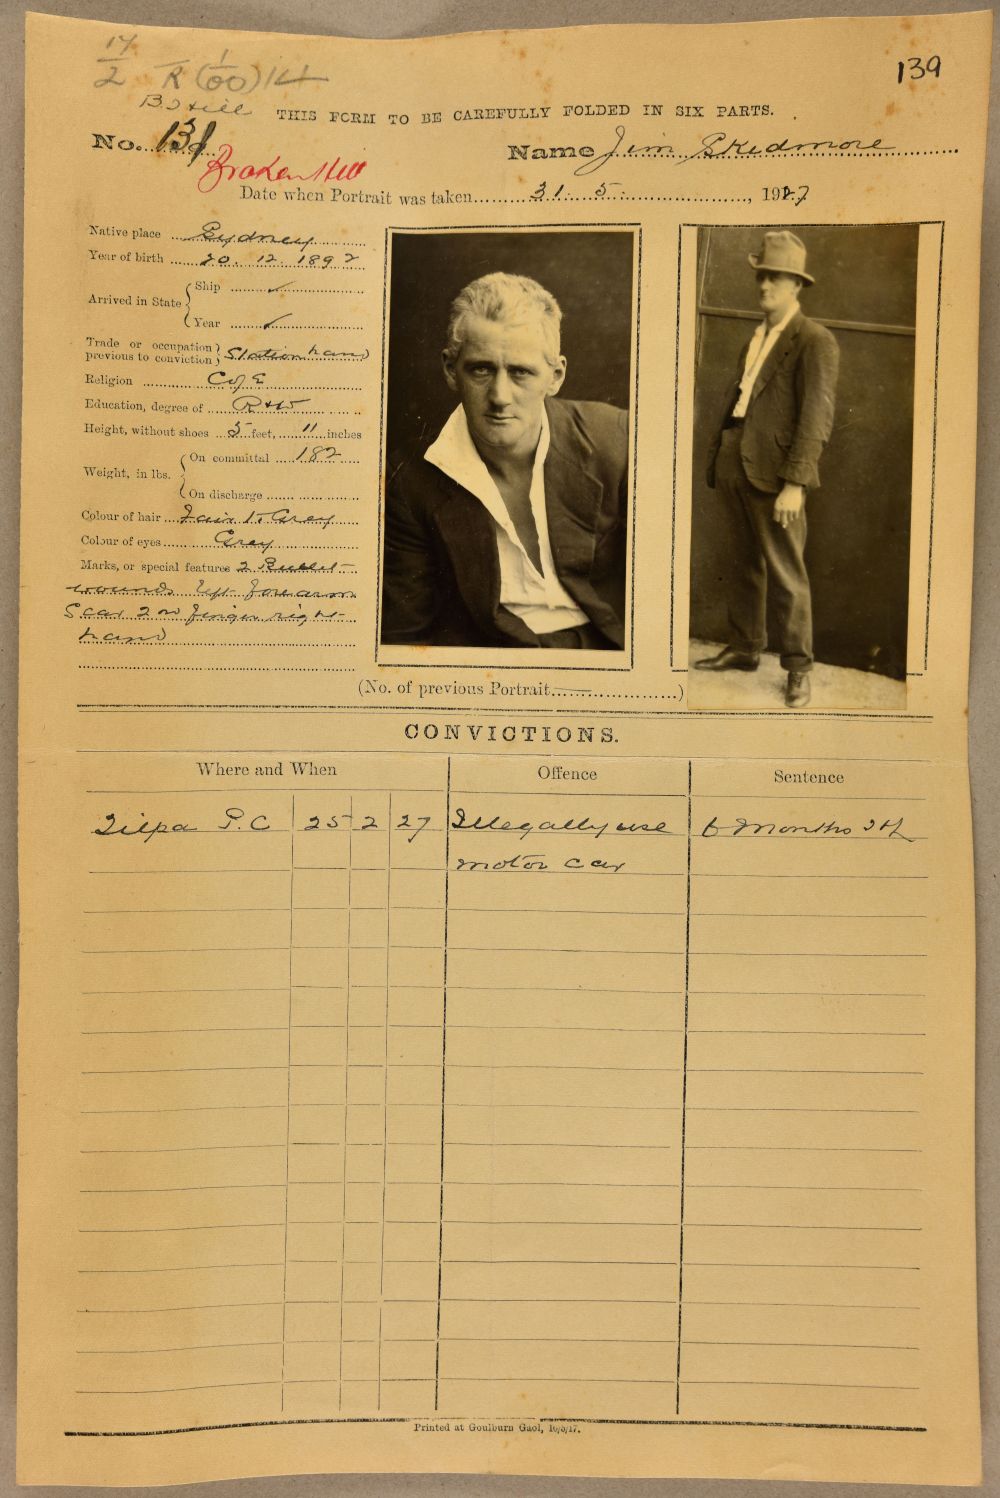 17/2 R (1/00) 14
139
B. Hill
THIS FORM TO BE CAREFULLY FOLDED IN SIX PARTS.
No. 139
Name Jim Skidmore
Broken Hill
Date when Portrait was taken 31. 5. , 1927
Native place Sydney
Year of birth 20. 12. 1892
Arrived in State { Ship ✓
Year ✓
Trade or occupation previous to conviction } Station hand
Religion C of E
Education, degree of R+W
Height, without shoes 5 feet, 11 inches
Weight, in lbs. { On committal 182
On discharge
Colour of hair Fair to Grey
Colour of eyes Grey
Marks, or special features 2 Bullet
wounds left forearm
Scar 2nd finger right
hand
(No. of previous Portrait — )
CONVICTIONS.
Where and When Offence Sentence
Tilpa P.C 25 2 27 Illegally use 6 Months
motor car
Printed at Goulburn Gaol,